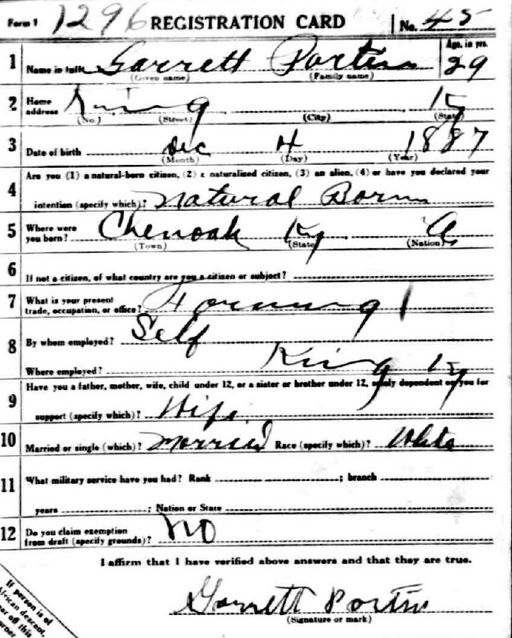 Form 1 1296 REGISTRATION CARD No. 45
1 Name in full Garrett Porter Age, in yrs. 29
(Given name) (Family name)
2 Home address King Ky
(No.) (Street) (City) (State)
3 Date of birth Dec 4 1887
(Month) (Day) (Year)
Are you (1) a natural-born citizen, (2) a naturalized citizen, (3) an alien, (4) or have you declared your
4 intention (specify which)? Natural Born
5 Where were you born? Chenoak Ky
(Town) (State) (Nation)
6 If not a citizen, of what country are you a citizen or subject?
7 What is your present trade, occupation, or office? Farming
8 By whom employed? Self
Where employed? King Ky
Have you a father, mother, wife, child under 12, or a sister or brother under 12, solely dependent on you for
9 support (specify which)? Wife
10 Married or single (which)? Married Race (specify which)? White
11 What military service have you had? Rank ; branch
years ; Nation or State
12 Do you claim exemption from draft (specify grounds)? No
I affirm that I have verified above answers and that they are true.
Garrett Porter
(Signature or mark)
If person is of
African descent,
off this
corner